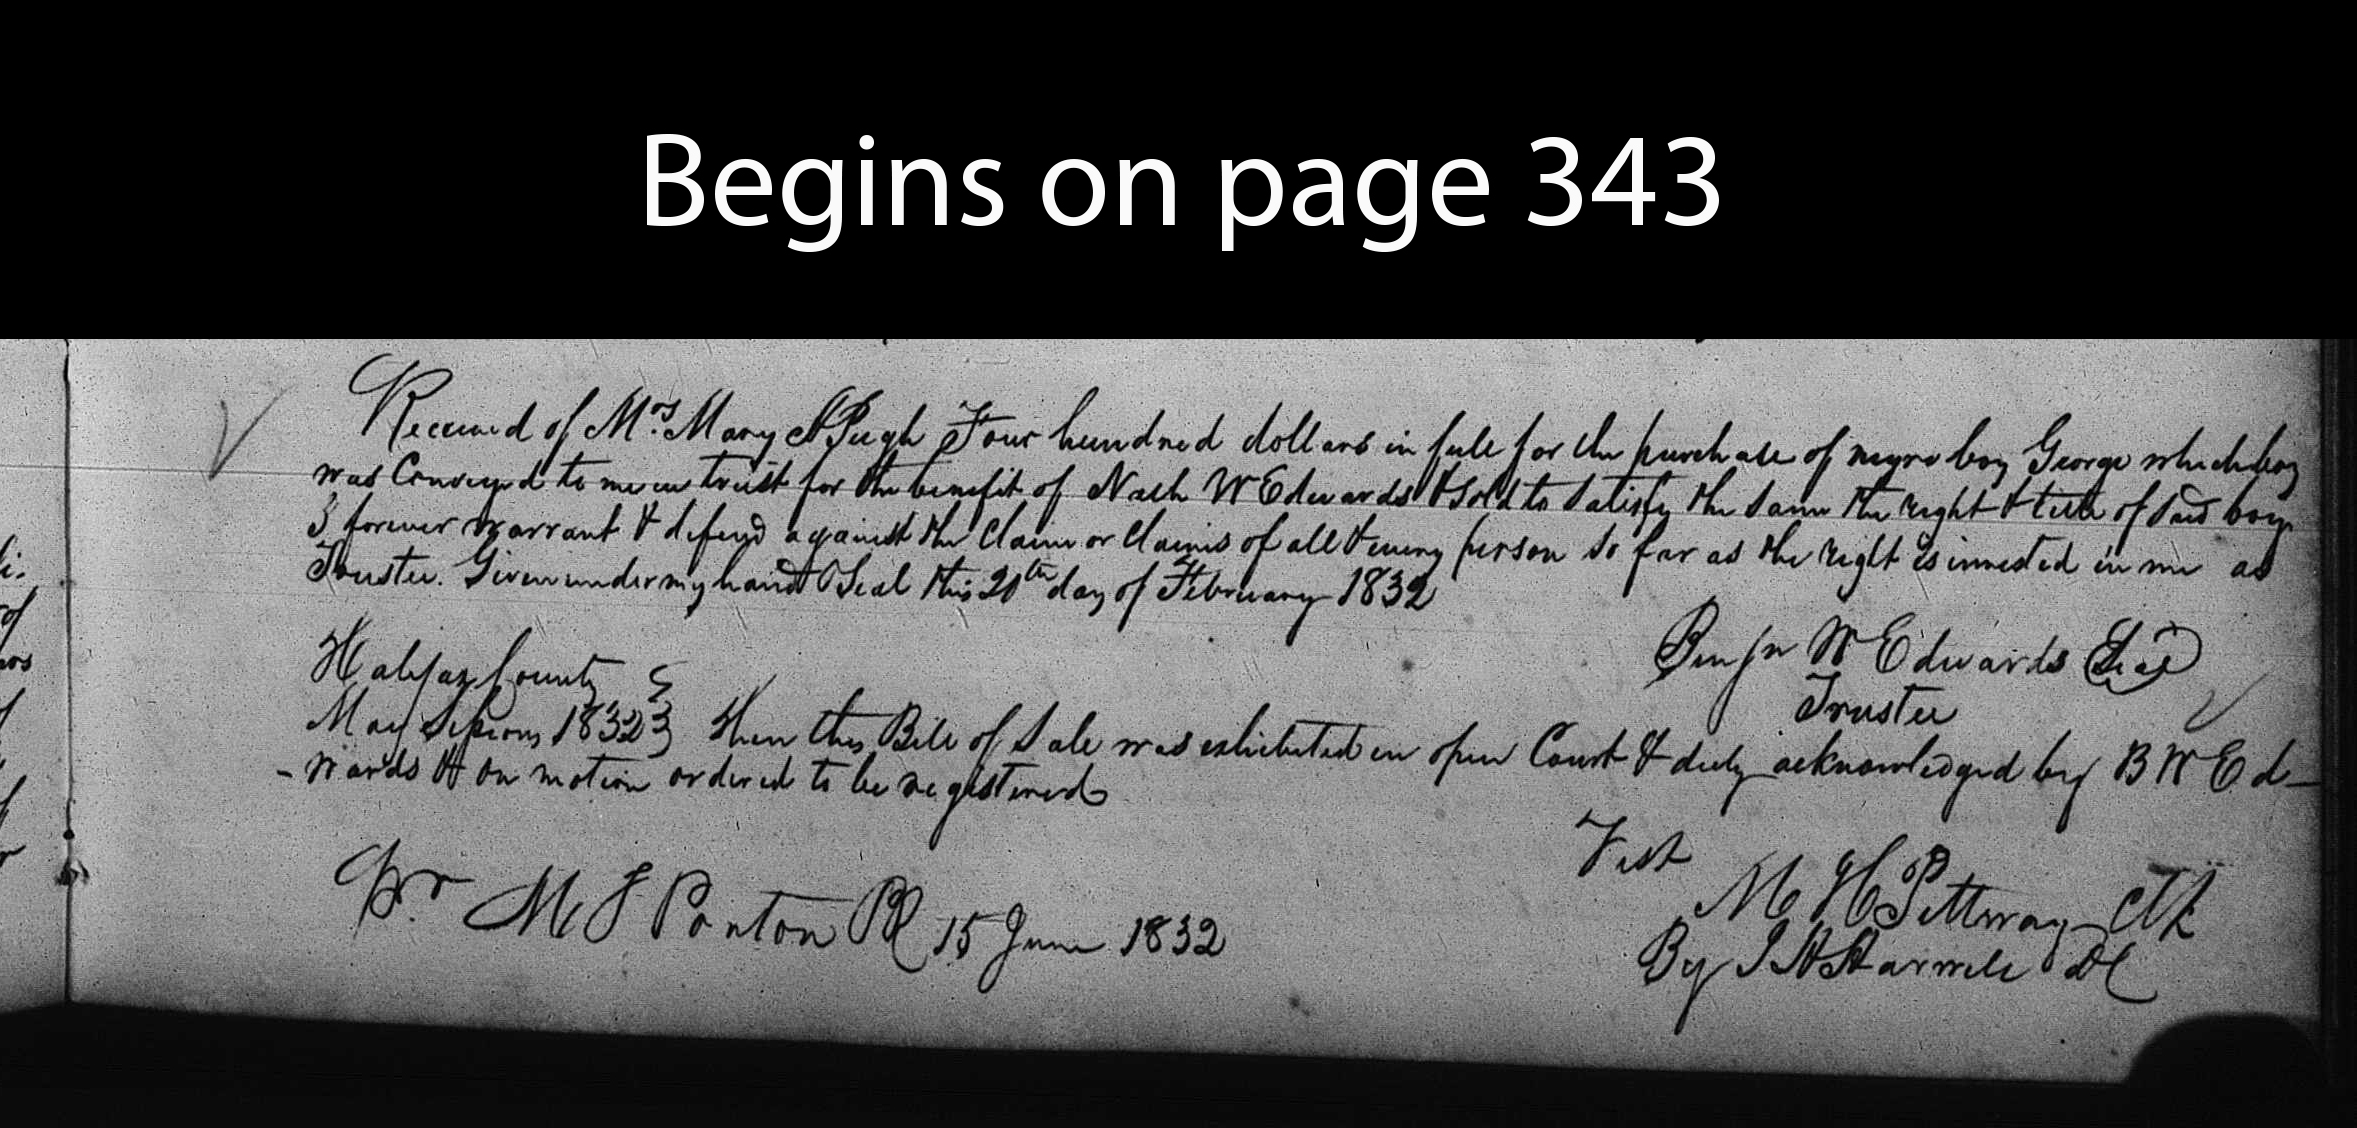 Begins on page 343
Received of Mrs. Mary A Pugh Four hundred dollars in full for the purchase of negro boy George which boy
was Conveyed to me in trust for the benefit of Nash W Edwards & sold to satisfy the same the right & title of said boy
I forever warrant & defend against the Claim or Claims of all & every person so far as the right is invested in me as
Trustee. Given under my hand & Seal this 20th day of February 1832
Benjn W Edwards Seal
Trustee
Halifax County
May Sessions 1832 } Then this Bill of Sale was exhibited in open Court & duly acknowledged by B W Ed-
-wards & on motion ordered to be registered
Test
M H Pettway Clk
Pr. M F Ponton PR 15 June 1832
By J H Harwell DC